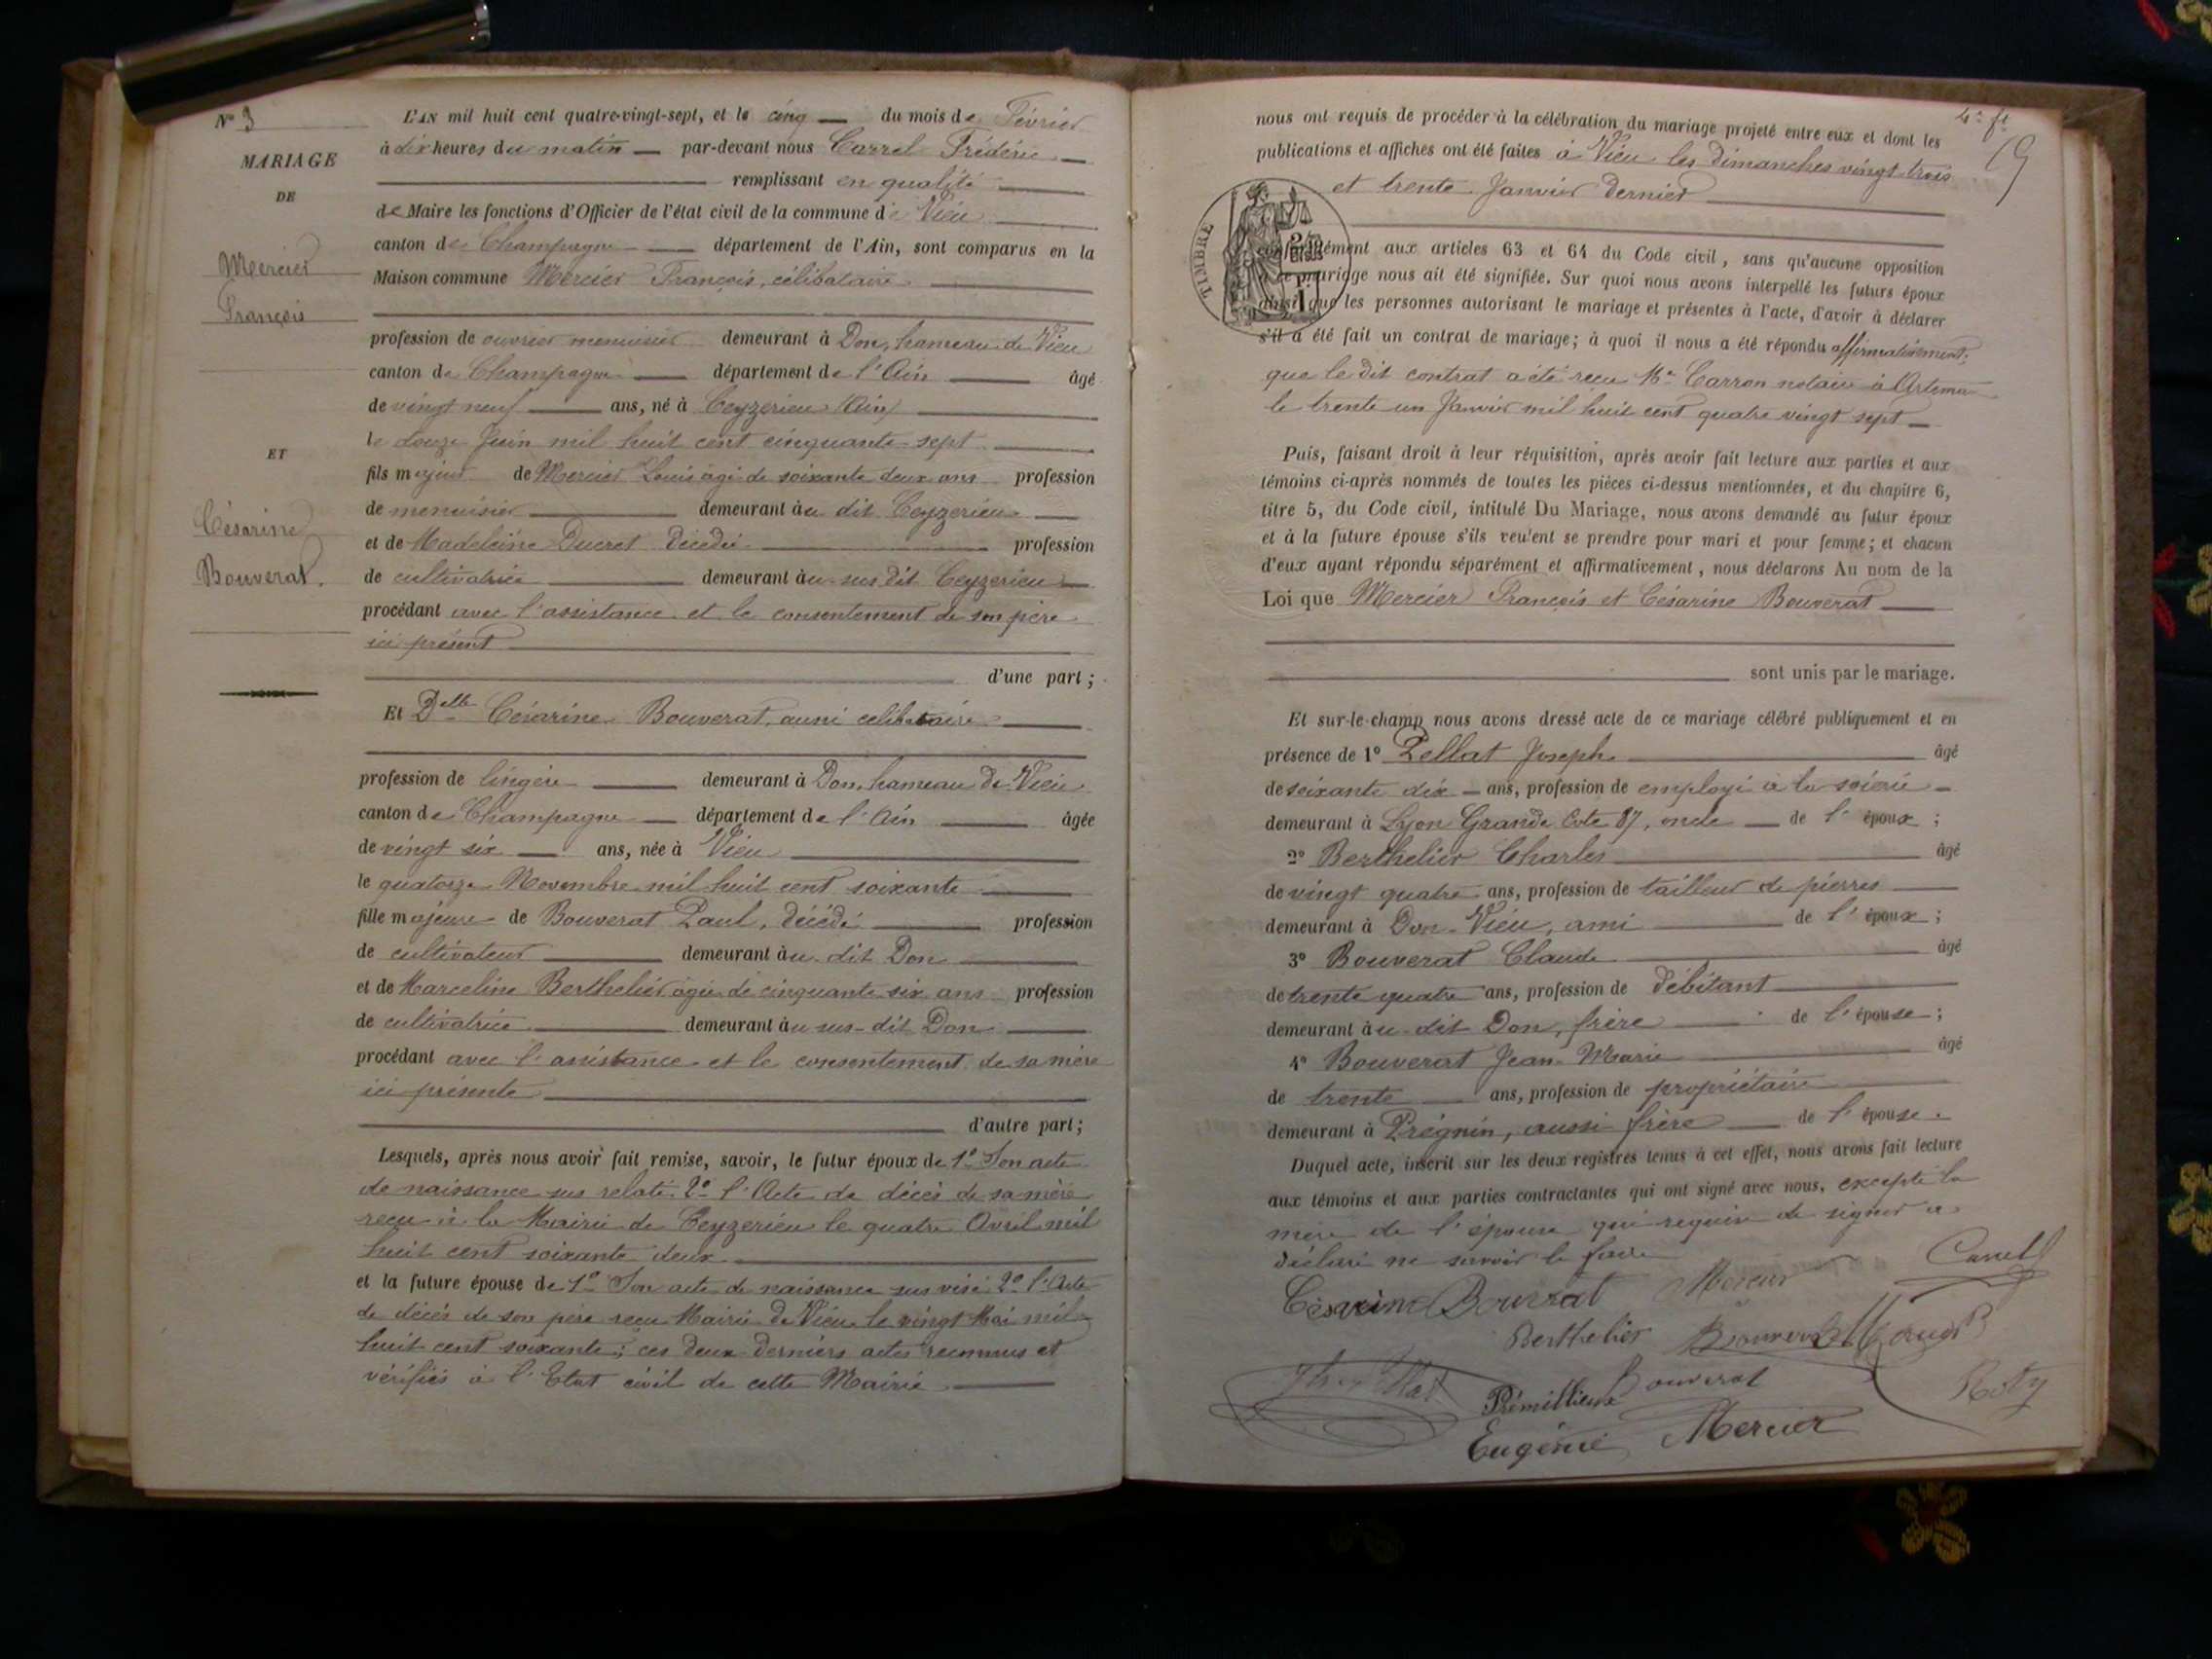 N° 3
MARIAGE
DE
Mercier
François
ET
Césarine
Bouverat.
L'AN mil huit cent quatre-vingt-sept, et le cinq du mois de Février
à dix heures du matin par-devant nous Carrel Frédéric
remplissant en qualité
de Maire les fonctions d'Officier de l'état civil de la commune de Vieu
canton de Champagne département de l'Ain, sont comparus en la
Maison commune Mercier François, célibataire
profession de ouvrier menuisier demeurant à Don, hameau de Vieu
canton de Champagne département de l'Ain âgé
de vingt neuf ans, né à Ceyzerieu (Ain)
le douze Juin mil huit cent cinquante-sept
fils majeur de Mercier Louis âgé de soixante deux ans profession
de menuisier demeurant au dit Ceyzerieu
et de Madeleine Ducret décédée profession
de cultivatrice demeurant au-sus dit Ceyzerieu
procédant avec l'assistance et le consentement de son père
ici présent
d'une part;
Et Delle Césarine Bouverat, aussi célibataire
profession de lingère demeurant à Don, hameau de Vieu
canton de Champagne département de l'Ain âgée
de vingt six ans, née à Vieu
le quatorze Novembre mil huit cent soixante
fille majeure de Bouverat Paul, décédé profession
de cultivateur demeurant au-dit Don
et de Marceline Berthelier âgée de cinquante six ans profession
de cultivatrice demeurant au sus-dit Don
procédant avec l'assistance et le consentement de sa mère
ici présente
d'autre part;
Lesquels, après nous avoir fait remise, savoir, le futur époux de 1° Son acte
de naissance sus relaté. 2° l'Acte de décès de sa mère
reçu à la Mairie de Ceyzerieu le quatre Avril mil
huit cent soixante deux
et la future épouse de 1° Son acte de naissance sus visé 2° l'Acte
de décès de son père reçu Mairie de Vieu le vingt Mai mil
huit cent soixante; ces deux derniers actes reconnus et
vérifiés à l'Etat civil de cette Mairie
4e ft
19
nous ont requis de procéder à la célébration du mariage projeté entre eux et dont les
publications et affiches ont été faites à Vieu les dimanches vingt trois
et trente Janvier dernier
TIMBRE
conformément aux articles 63 et 64 du Code civil, sans qu'aucune opposition
à ce mariage nous ait été signifiée. Sur quoi nous avons interpellé les futurs époux
ainsi que les personnes autorisant le mariage et présentes à l'acte, d'avoir à déclarer
s'il a été fait un contrat de mariage; à quoi il nous a été répondu affirmativement;
que le dit contrat a été reçu Me Carron notaire à Artemare
le trente un Janvier mil huit cent quatre vingt sept
Puis, faisant droit à leur réquisition, après avoir fait lecture aux parties et aux
témoins ci-après nommés de toutes les pièces ci-dessus mentionnées, et du chapitre 6,
titre 5, du Code civil, intitulé Du Mariage, nous avons demandé au futur époux
et à la future épouse s'ils veulent se prendre pour mari et pour femme; et chacun
d'eux ayant répondu séparément et affirmativement, nous déclarons Au nom de la
Loi que Mercier François et Césarine Bouverat
sont unis par le mariage.
Et sur-le-champ nous avons dressé acte de ce mariage célébré publiquement et en
présence de 1° Pellat Joseph âgé
de soixante dix ans, profession de employé à la soierie
demeurant à Lyon Grande Cote 87, oncle de l'époux;
2° Berthelier Charles âgé
de vingt quatre ans, profession de tailleur de pierres
demeurant à Don-Vieu, ami de l'époux;
3° Bouverat Claude âgé
de trente quatre ans, profession de débitant
demeurant au-dit Don, frère de l'épouse;
4° Bouverat Jean-Marie âgé
de trente ans, profession de propriétaire
demeurant à Prégnin, aussi frère de l'épouse.
Duquel acte, inscrit sur les deux registres tenus à cet effet, nous avons fait lecture
aux témoins et aux parties contractantes qui ont signé avec nous, excepté la
mère de l'épouse qui requise de signer a
déclaré ne savoir le faire
Carrel
Césarine Bouverat Mercier
Berthelier Bouverat
Bouverat
Prémillieux Roty
Eugénie Mercier